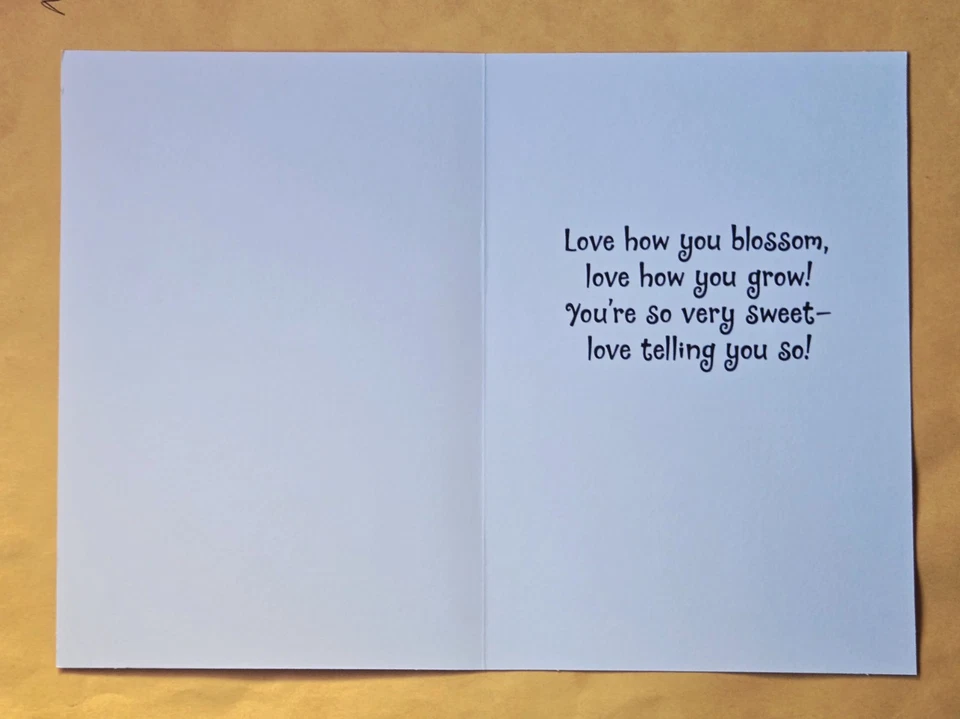 Love how you blossom,
love how you grow!
You're so very sweet–
love telling you so!